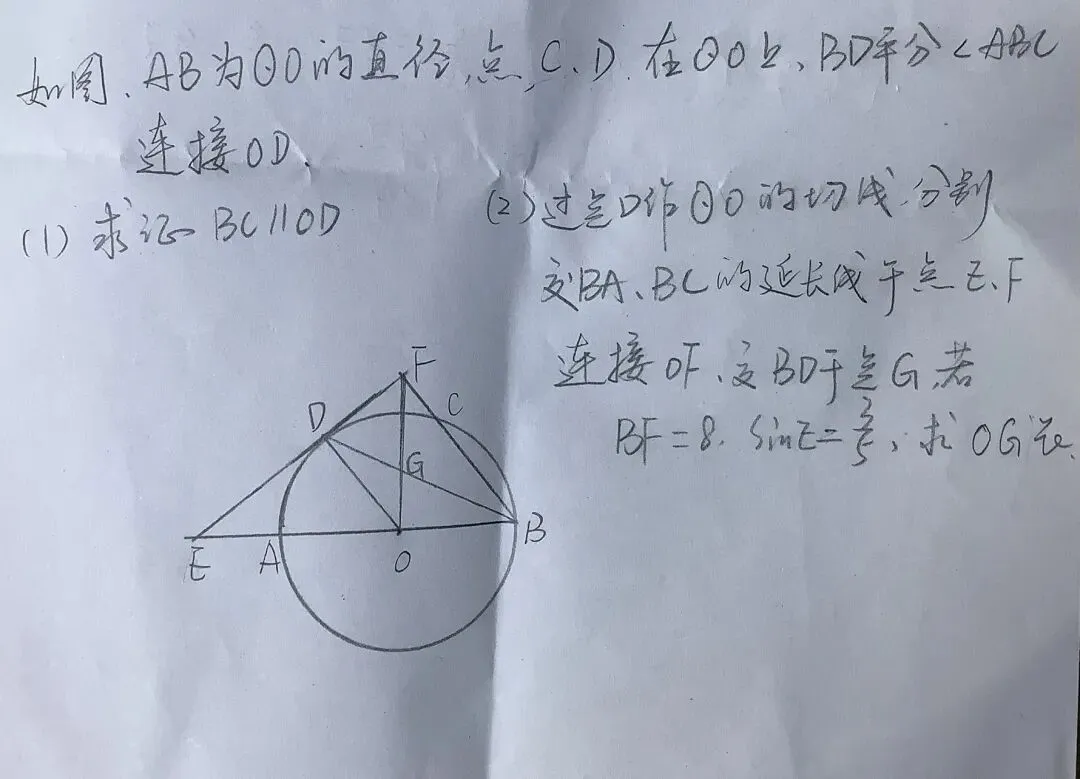 如图、AB为⊙O的直径,点C、D在⊙O上、BD平分<ABC
连接OD.
(1) 求证 BC//OD
(2) 过点D作⊙O的切线.分别
交BA、BC的延长线于点E、F
连接OF、交BD于点G,若
BF=8. SinE=3/5, 求OG长.
F
D
C
G
E
A
O
B